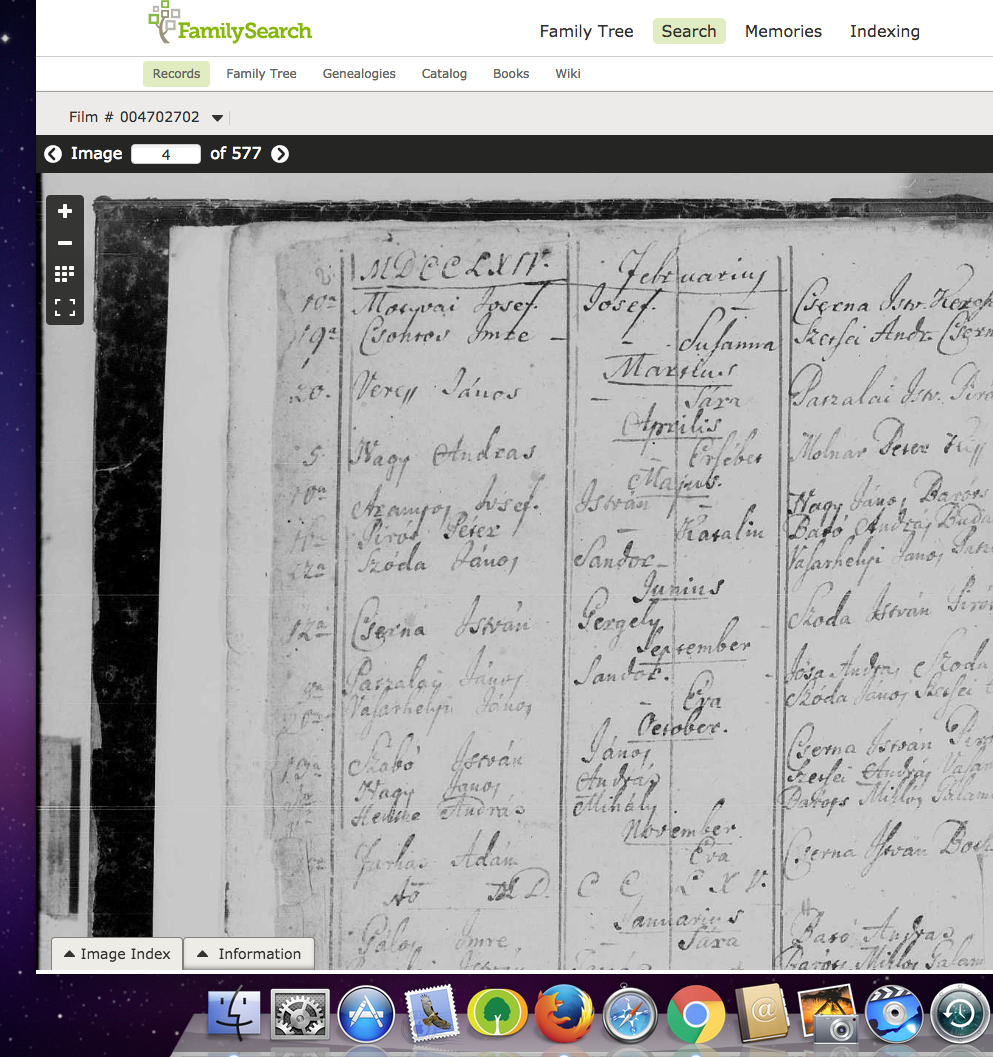 FamilySearch
Family Tree Search Memories Indexing
Records Family Tree Genealogies Catalog Books Wiki
Film # 004702702
Image 4 of 577
MDCCLXIV. Februarius
10a Josef Josef. – Cserna Istv.
19a Csontos Imre – – Susanna Szersei Andr.
Martius
20. Veress János – Sára Paszalai Istv.
Aprilis
5. Nagy Andras – Ersébet Molnar Peter Kiss
Majus.
10a Josef. István – Nagy János
Piros Peter – Katalin Baró András Buda
12a Szóda János Sandor – Vasarhelyi János
Junius
12a Cserna István Gergely Szoda István
September
Paszalay János Sandor. – Jósa András Szoda
Vasarhelyi János – Eva Szóda János Szersei
October.
19a Szabó István János Cserna István
Nagy János András Szersei András
András Mihály Miklós
November.
Farkas Adám Eva Cserna István
Aō MDCCLXV.
Januarius
Imre Sára Baró Andras
Miklós
Image Index Information
@